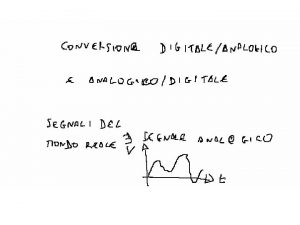 CONVERSIONE DIGITALE/ANALOGICO
E ANALOGICO/DIGITALE
SEGNALI DEL
MONDO REALE → SEGNALE ANALOGICO
V
t